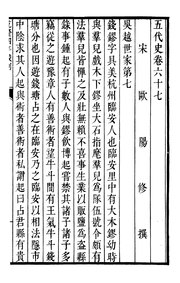 五代史卷六十七
宋歐陽修撰
吳越世家第七
錢鏐字具美杭州臨安人也臨安里中有大木鏐幼時
與羣兒戲木下鏐坐大石指麾羣兒爲隊伍號令頗有
法羣兒皆憚之及壯無賴不喜事生業以販鹽爲盜縣
錄事鍾起有子數人與鏐飲博起嘗禁其諸子諸子多
竊從之遊豫章人有善術者望牛斗間有王氣牛斗錢
塘分也因遊錢塘占之在臨安乃之臨安以相法隱市
中陰求其人起與術者善術者私謂起曰占君縣有貴